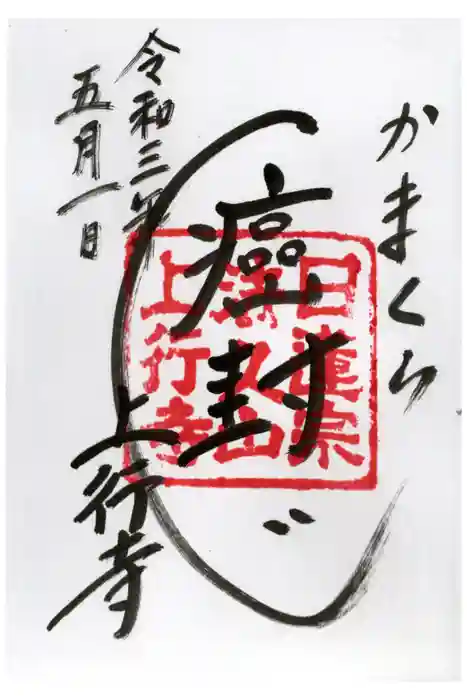 かまくら
癌封じ
日蓮宗
法久山
上行寺
上行寺
令和三年
五月一日